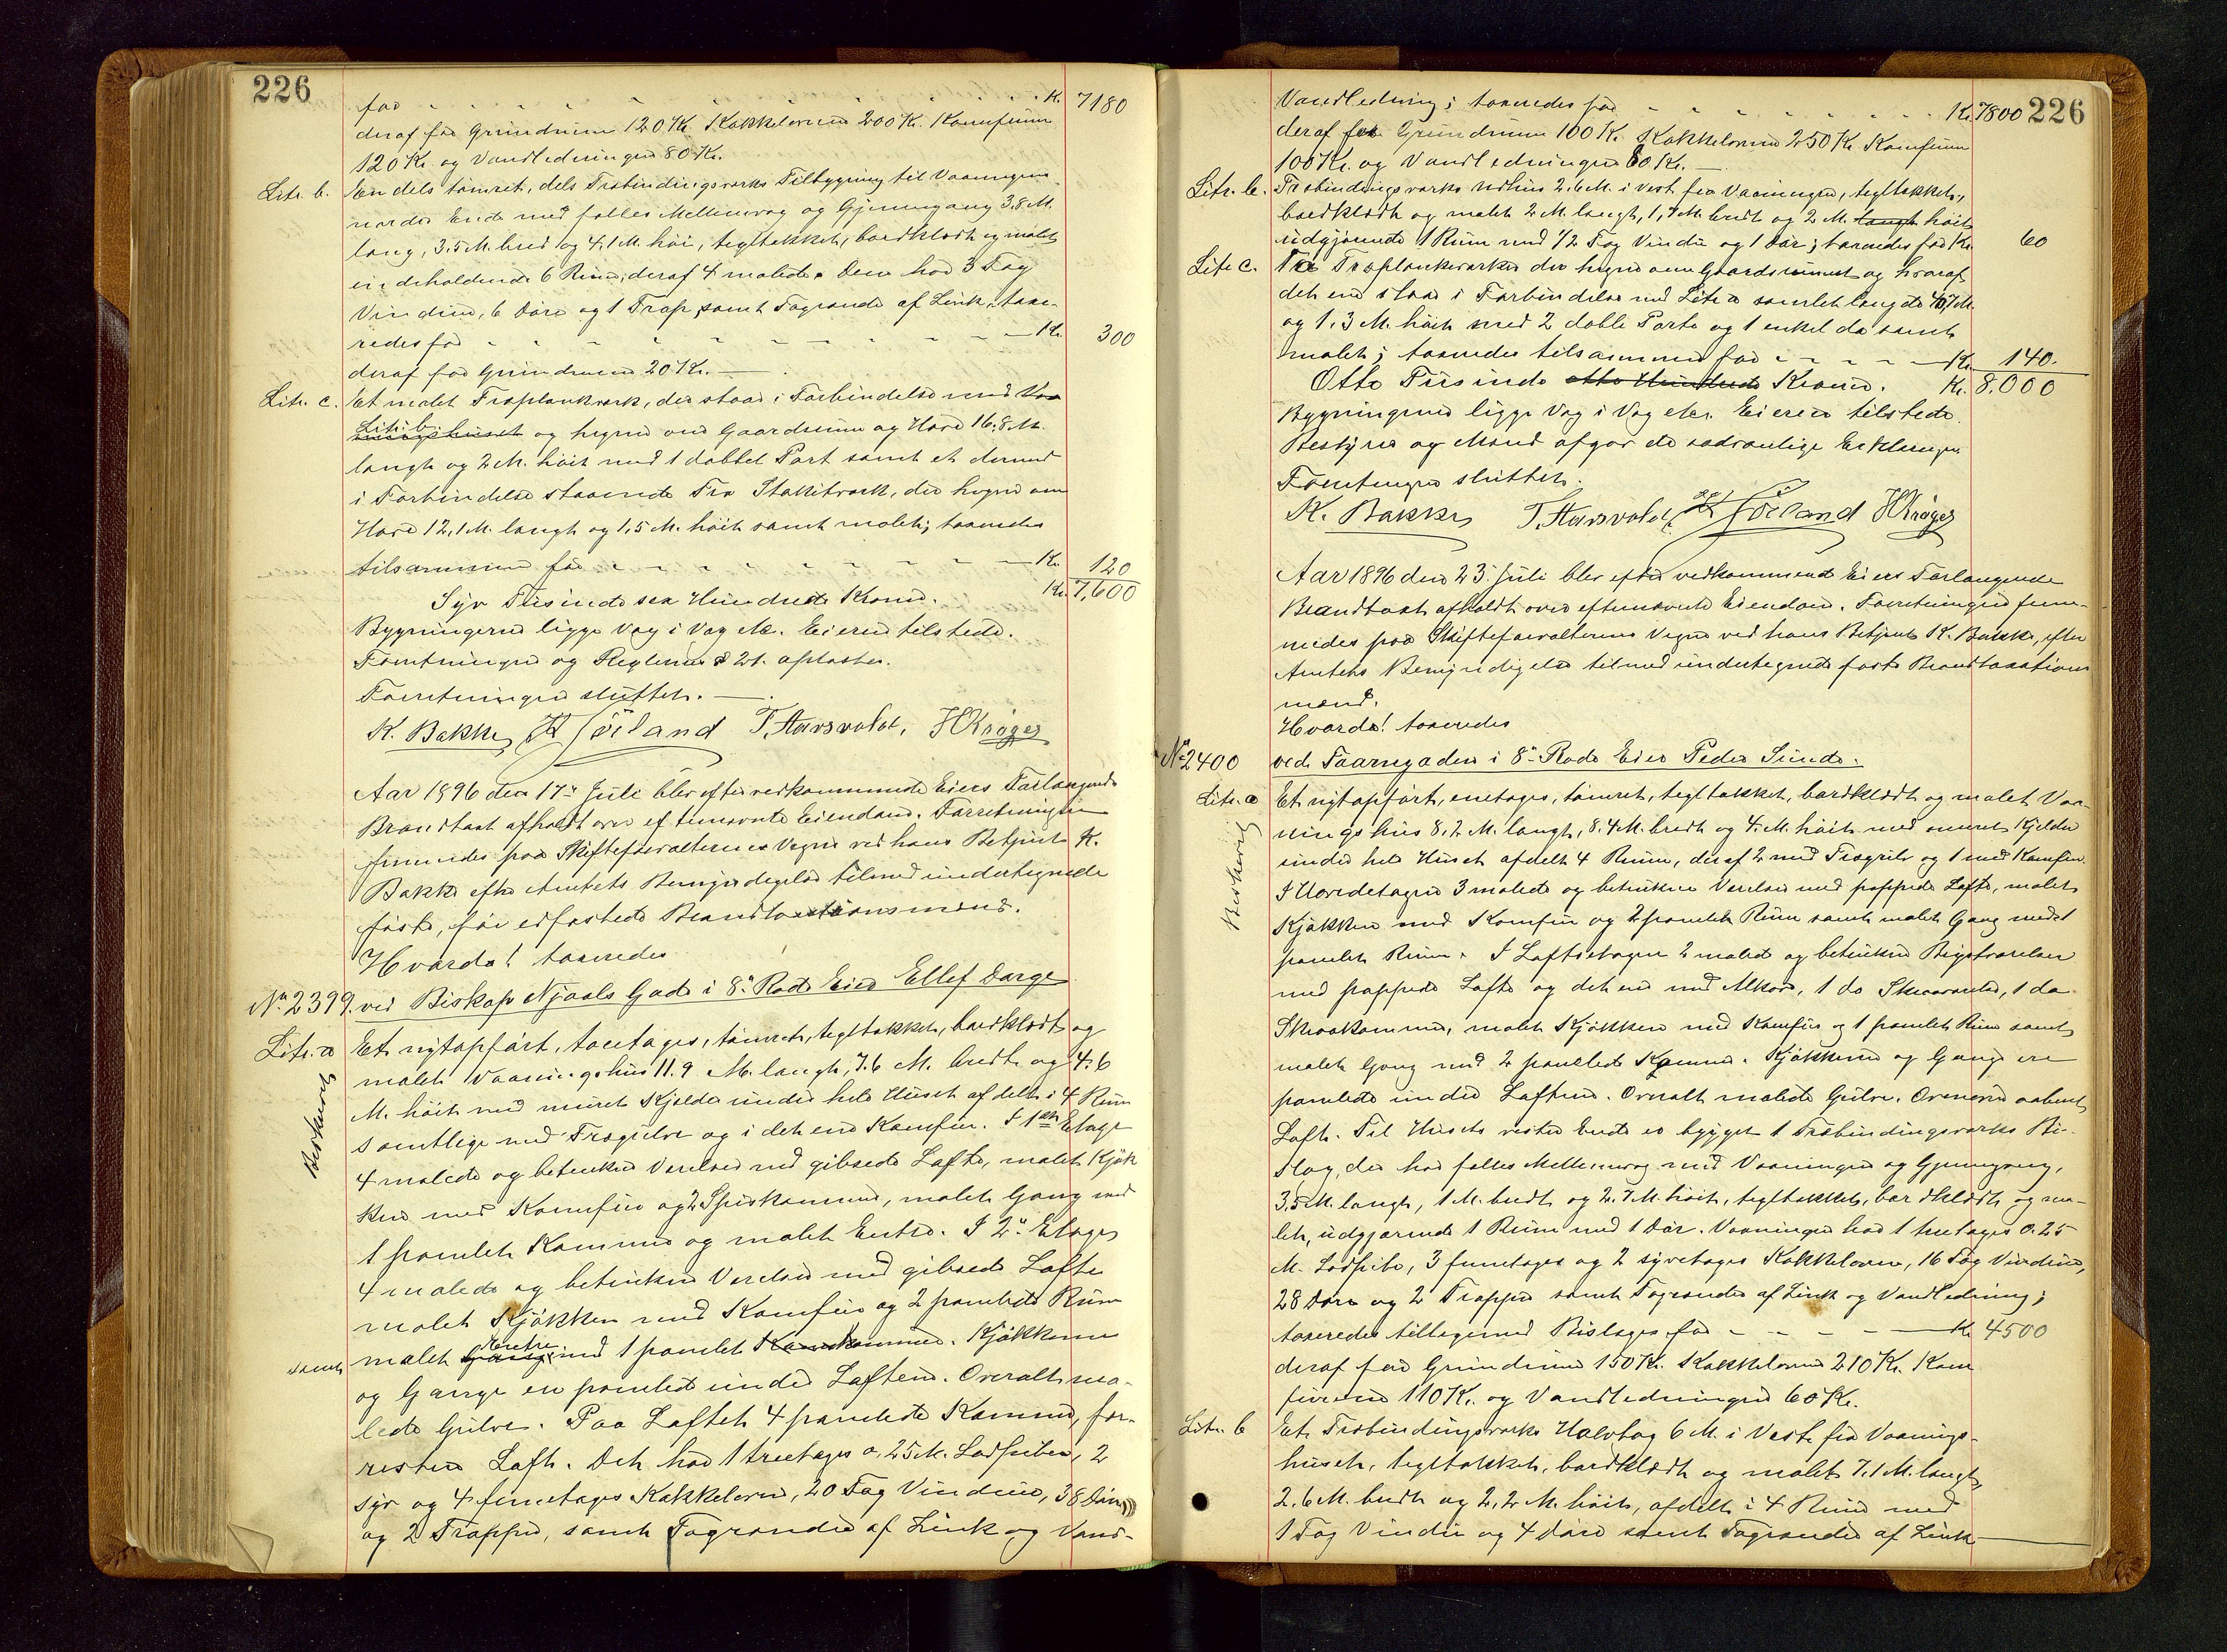 226
for - - - - - - - - - Kr. 7180
deraf for Grundmuren 120 Kr. Kakkelovnene 200 Kr. Komfurerne
120 Kr. og Vandledningen 80 Kr.
Litr. b. En dels tømret, dels Træbindingsværks Tilbygning til Vaaningens
nordre Ende med fælles Mellemvæg og Gjennemgang 3.8 M.
lang, 3.5 M. bred og 4.1 M. høi, tegltækket, bordklædt og malet
indeholdende 6 Rum, deraf 4 malede. Den har 3 Fag
Vinduer, 6 Døre og 1 Trap, samt Tagrende af Zink; taxe-
redes for - - - - - - - - - Kr. 300
deraf for Grundmuren 20 Kr.
Litr. c. Et malet Træplankværk, der staar i Forbindelse med Vaa
Litr. b.
ningshuset og hegner om Gaardsrum og Have 16.8 M.
langt og 2 M. høit med 1 dobbel Port samt et dermed
i Forbindelse staaende Træ Stakitværk, der hegner om
Have 12.1 M. langt og 1.5 M. høit samt malet; taxeredes
tilsammen for - - - - - - - - Kr. 120
Syv Tusinde sex Hundrede Kroner. Kr. 7,600
Bygningerne ligge Væg i Væg etc. Eieren tilstede.
Forretningen og Reglernes § 21. oplæstes.
Forretningen sluttet.
K. Bakke, Hørland T. Aarsvold, H Krøger
Aar 1896 den 17de Juli blev efter vedkommende Eiers Forlangende
Brandtaxt afholdt over efternævnte Eiendom. Forretningen
fremmedes paa Skifteforvalterens Vegne ved hans Betjent K.
Bakke efter Amtets Bemyndigelse tilmed undertegnede
faste, før edfæstede Brandtaxtionsmænd.
Hvorda! taxeredes
No. 2399. ved Biskop Njaals Gade i 8de Rode Eier Ellef Dørge
Litr. a Et nytopført, toetages, tømret, tegltækket, bordklædt og
malet Vaaningshus 11.9 M. langt, 7.6 M. bredt og 4.6
M. høit med muret Kjelder under hele Huset afdelt i 4 Rum
samtlige med Trægulve og i det ene Komfur. I 1ste Etage
Beskrevet
4 malede og betrukne Værelser med gibsede Lofte, malet Kjøk
ken med Komfur og 2 Spiskammere, malet Gang med
1 panelet Kammer og malet Entre. I 2den Etage
4 malede og betrukne Værelser med gibsede Lofte
malet Kjøkken med Komfur og 2 panelede Rum
samt malet Gang Entre med 1 panelet Kammer. Kjøkkenerne
og Gange er panelede under Loftene. Overalt ma-
lede Gulve. Paa Loftet 4 panelede Kamre, for-
resten Loft. Det har 1 treetages 0.25 M. Ladpiber, 2
syv og 4 femetages Kakkelovne, 20 Fag Vinduer, 38 Døre
og 2 Trapper, samt Tagrender af Zink og Vand-
226
Vandledning; taxeredes for - - - - - - Kr. 7800
deraf for Grundmuren 100 Kr. Kakkelovnene 250 Kr. Komfurerne
100 Kr. og Vandledningen 80 Kr.
Litr. b. Træbindingsværks Udhus 2.6 M. i Vest fra Vaaningen, tegltækket,
bordklædt og malet 2 M. langt, 1.7 M. bredt og 2 M. langt høit
udgjørende 1 Rum med 1/2 Fag Vindu og 1 Dør; taxeredes for Kr. 60
Litr. c. To Træplankeværker der hegne om Gaardsrummet og hvoraf
det ene staar i Forbindelse med Litr. a samlet længde 40.7 M.
og 1.3 M. høit med 2 doble Porte og 1 enkel do samt
malet; taxeredes tilsammen for - - - - Kr. 140.
Otte Tusinde otte Hundrede Kroner. Kr. 8,000
Bygningerne ligge Væg i Væg etc. Eieren tilstede.
Bestyrer og Mænd afgav de sædvanlige Erklæringer.
Forretningen sluttet.
K. Bakke T. Aarsvold, Hørland H Krøger
Aar 1896 den 23. Juli blev efter vedkommende Eiers Forlangende
Brandtaxt afholdt over eftennævnte Eiendom. Forretningen frem-
medes paa Skifteforvalterens Vegne ved hans Betjent K. Bakke, efter
Amtets Bemyndigelse tilmed undertegnede faste Brandtaxations
mænd.
Hvorda! taxeredes
No. 2400 ved Taarngaden i 8de Rode Eier Peder Sunde.
Litr. a Et nytopført, enetages, tømret, tegltækket, bordklædt og malet Vaa-
ningshus 8.2 M. langt, 8.4 M. bredt og 4. M. høit med muret Kjelder
under hele Huset afdelt 4 Rum, deraf 2 med Trægulv og 1 med Komfur.
Beskrevet
I Hovedetagen 3 malede og betrukne Værelser med pappede Lofte, malet
Kjøkken med Komfur og 2 panelet Rum samt malet Gang med 1
panelet Rum. I Loftsetagen 2 malede og betrukne Kvistværelser
med pappede Lofte og det ene med Alkove, 1 do Skraaværelse, 1 do
Skraakammer, malet Kjøkken med Komfur og 1 panelet Rum samt
malet Gang med 2 panelede Kamre. Kjøkkener og Gange ere
panelede under Loftene. Overalt malede Gulve. Ovenover aabent
Loft. Til Husets vestre Ende er bygget 1 Træbindingsværks Bi-
slag, der har fælles Mellemvæg med Vaaningen og Gjennemgang,
3.5 M. langt, 1 M. bredt og 2.7 M. høit, tegltækket, bordklædt og ma-
let, udgjørende 1 Rum med 1 Dør. Vaaningen har 1 treetages 0.25
M. Ladpibe, 3 femetages og 2 syvetages Kakkelovne, 16 Fag Vinduer,
28 Døre og 2 Trapper samt Tagrender af Zink og Vandledning;
taxeredes tilligemed Bislaget for - - - - Kr. 4500
deraf for Grundmuren 150 Kr. Kakkelovnene 210 Kr. Kom
furerne 110 Kr. og Vandledningen 60 Kr.
Litr. b Et Træbindingsværks Halvtag 6 M. i Vest fra Vaanings-
huset, tegltækket, bordklædt og malet 7.1 M. langt,
2.6 M. bredt og 2.2 M. høit, afdelt i 4 Rum med
1 Fag Vindu og 4 Døre samt Tagrender af Zink